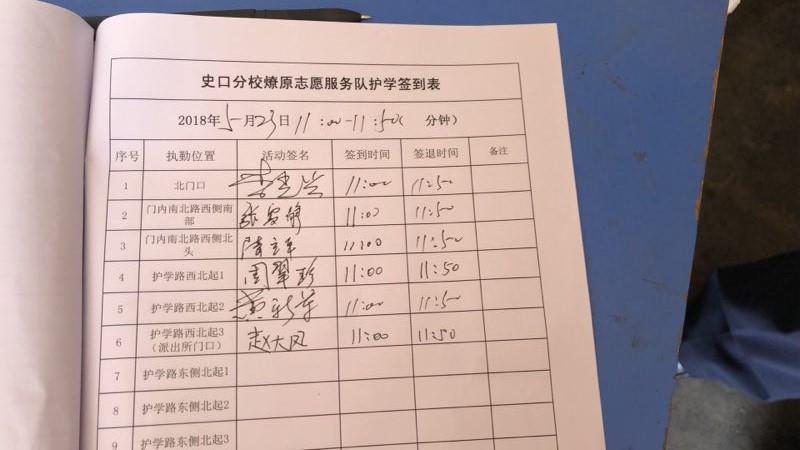 史口分校燎原志愿服务队护学签到表
2018年5月23日 11:00-11:50( 分钟)
序号 执勤位置 活动签名 签到时间 签退时间 备注
1 北门口 11:00 11:50
2 门内南北路西侧南部 11:00 11:50
3 门内南北路西侧北头 11:00 11:50
4 护学路西北起1 周翠珍 11:00 11:50
5 护学路西北起2 11:00 11:50
6 护学路西北起3(派出所门口) 赵大凤 11:00 11:50
7 护学路东侧北起1
8 护学路东侧北起2
9 护学路东侧北起3